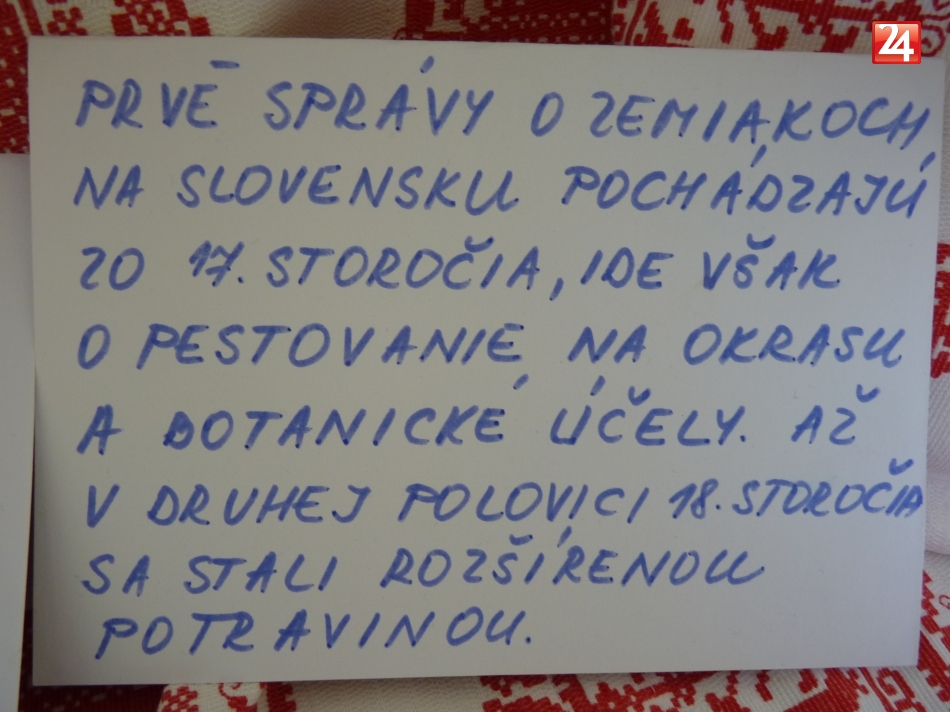 24
PRVÉ SPRÁVY O ZEMIAKOCH
NA SLOVENSKU POCHÁDZAJÚ
ZO 17. STOROČIA, IDE VŠAK
O PESTOVANIE NA OKRASU
A BOTANICKÉ ÚČELY. AŽ
V DRUHEJ POLOVICI 18. STOROČIA
SA STALI ROZŠÍRENOU
POTRAVINOU.